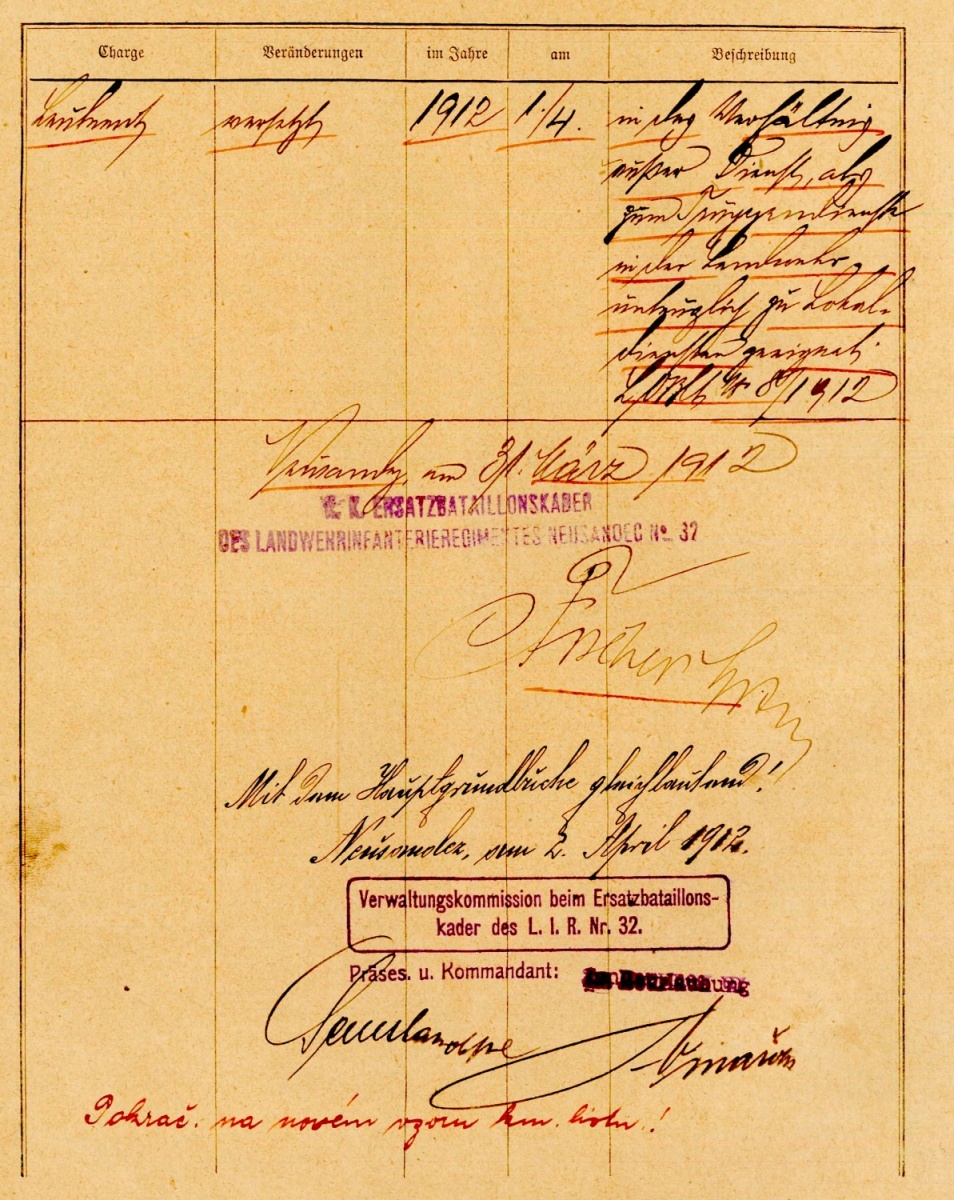 Charge Veränderungen im Jahre am Beschreibung
Leutnant versetzt 1912 1./4. in das Verhältnis
außer Dienst, als
zum Truppendienste
in der Landwehr
untauglich zu Lokal-
diensten geeignet.
Nr 8/1912
Neusandez, am 31. März 1912
K. K. ERSATZBATAILLONSKADER
DES LANDWEHRINFANTERIEREGIMENTES NEUSANDEC No. 32
Mit dem Hauptgrundbuche gleichlautend!
Neusandez, am 2. April 1912.
Verwaltungskommission beim Ersatzbataillons-
kader des L. I. R. Nr. 32.
Präses. u. Kommandant:
Pokrač. na novém vzoru km. listu!